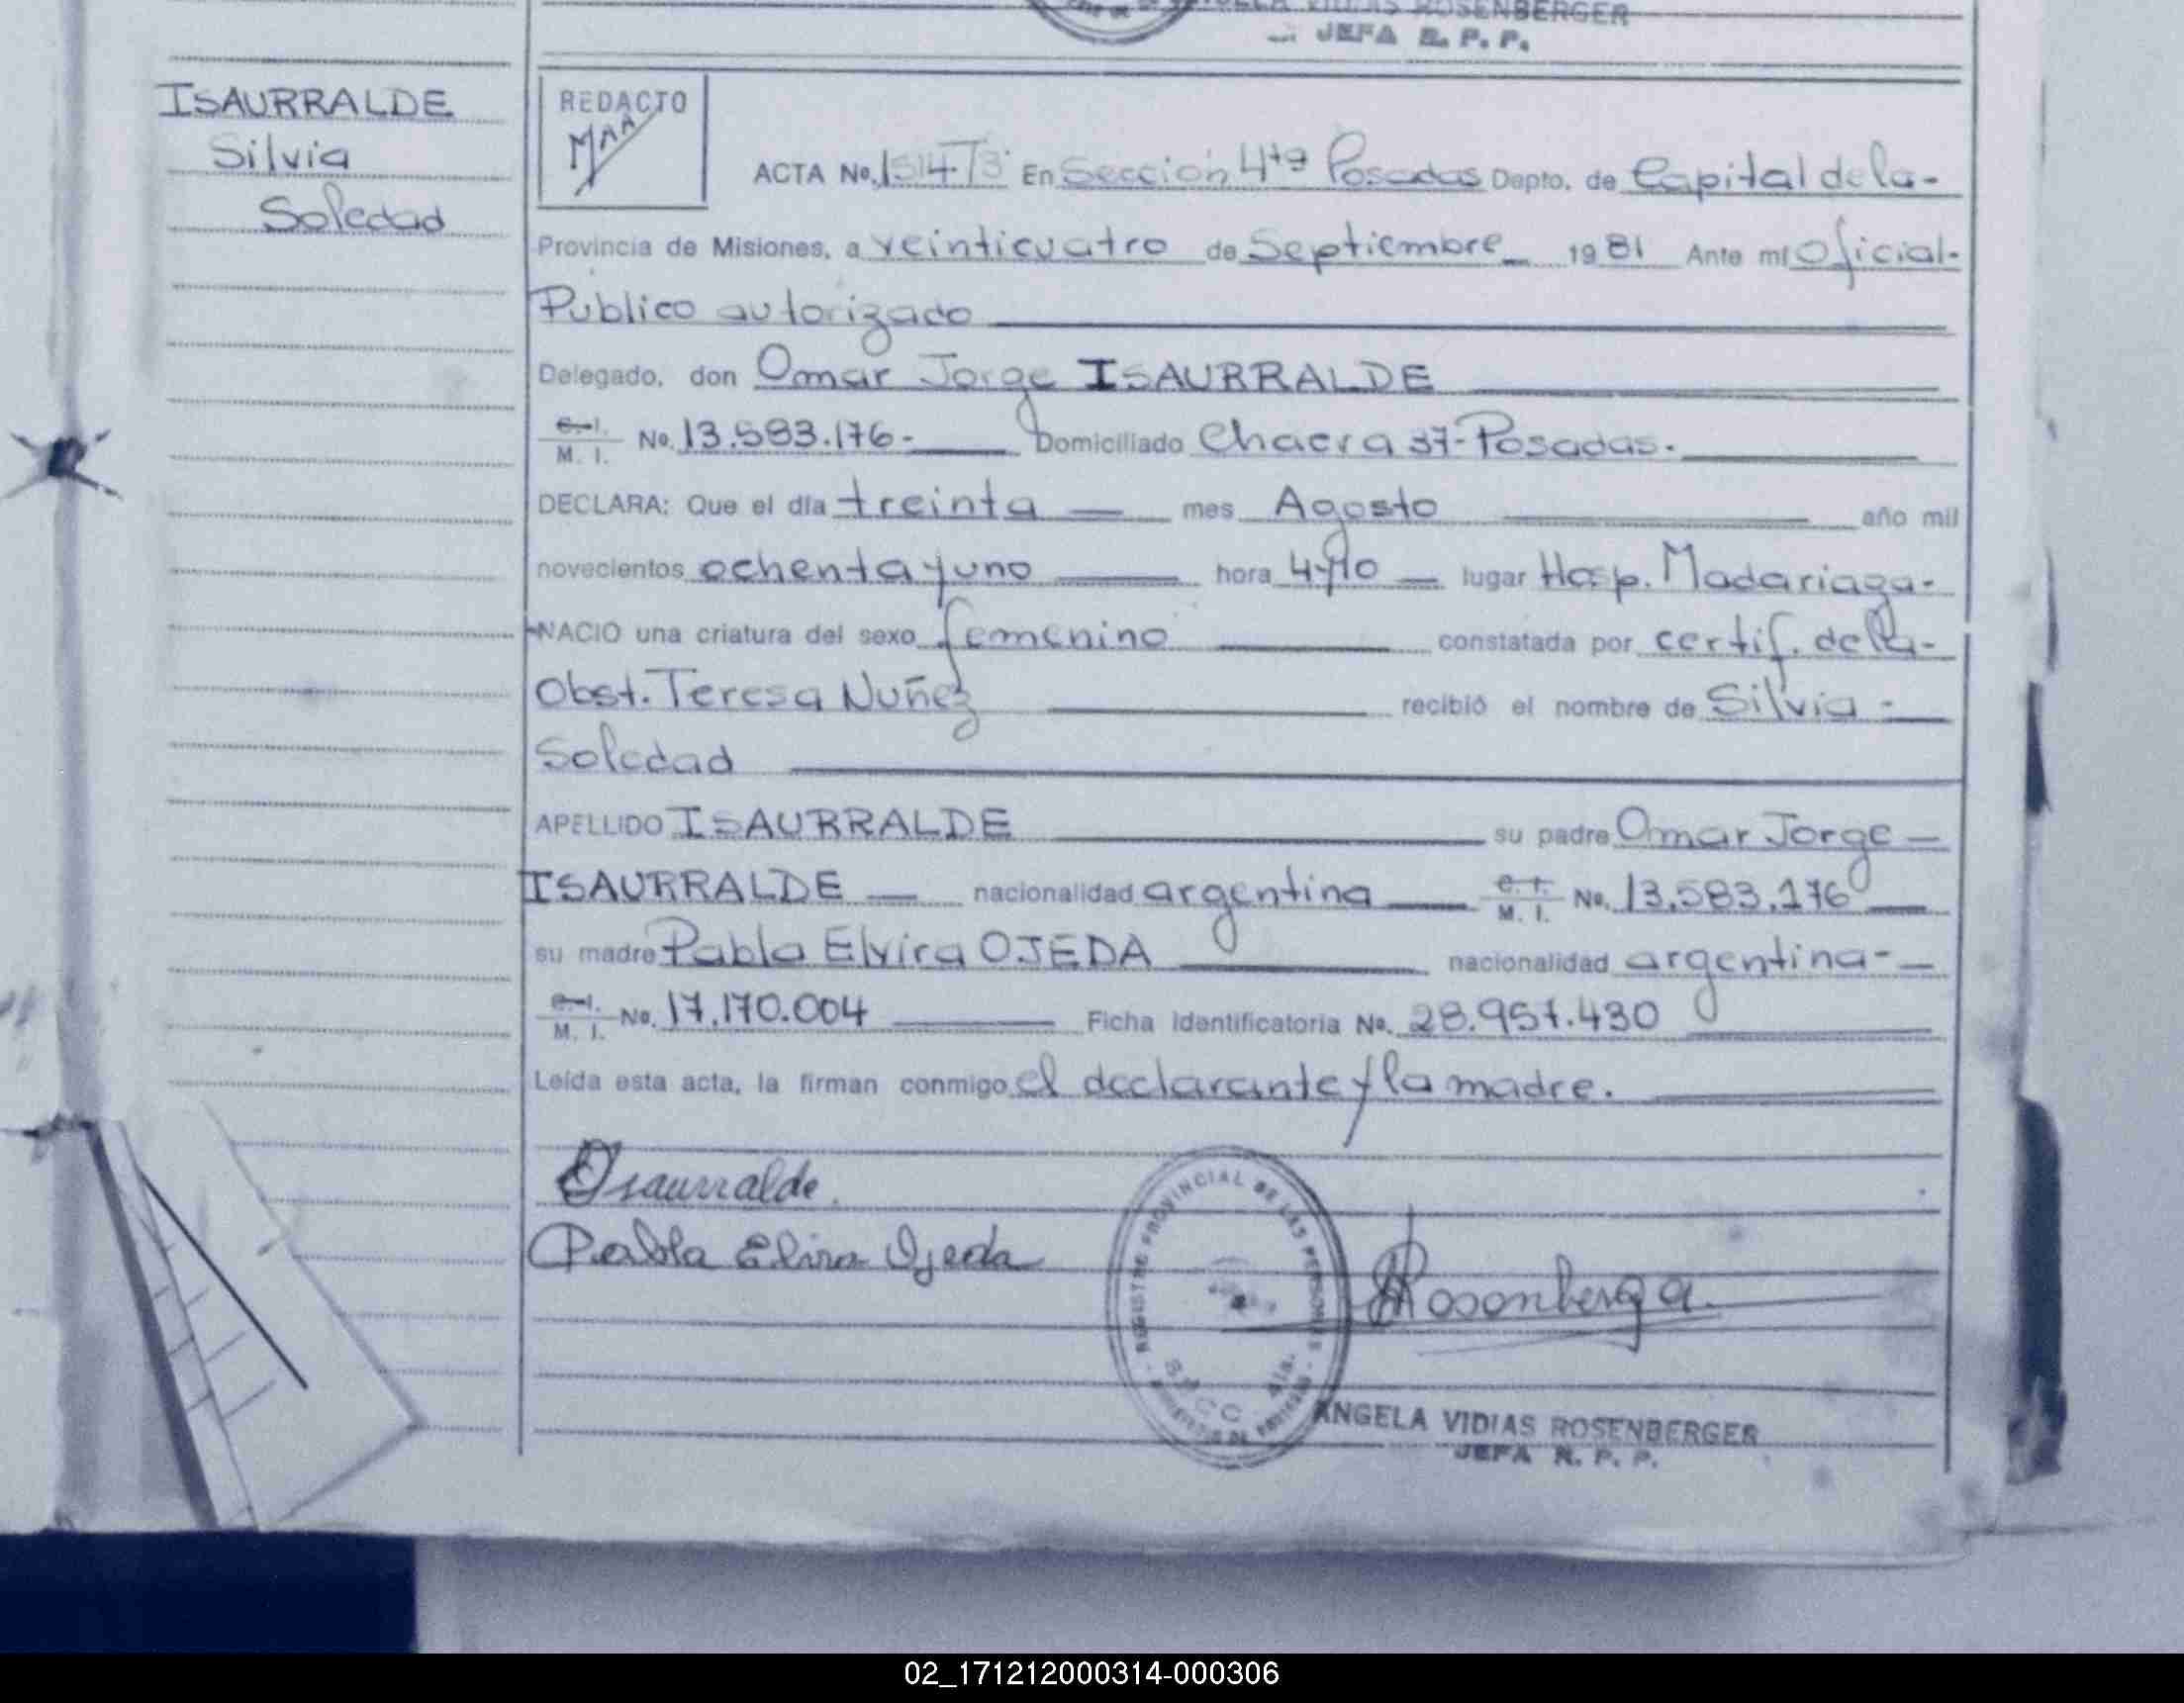 ANGELA VIDIAS ROSENBERGER
JEFA R. P. P.
ISAURRALDE
Silvia
Soledad
REDACTO
ACTA No. 1514-T3 En Sección 4ta Posadas Depto. de Capital de la-
Provincia de Misiones, a veinticuatro de Septiembre 1981 Ante mí Oficial-
Publico autorizado
Delegado, don Omar Jorge ISAURRALDE
C. I. M. I. No. 13.583.176- Domiciliado Chacra 37-Posadas.
DECLARA: Que el día treinta mes Agosto año mil
novecientos ochenta y uno hora 4y10 lugar Hosp. Madariaga-
NACIO una criatura del sexo femenino constatada por certif. de la-
Obst. Teresa Nuñez recibió el nombre de Silvia-
Soledad
APELLIDO ISAURRALDE su padre Omar Jorge
ISAURRALDE nacionalidad argentina C. I. M. I. No. 13.583.176
su madre Pabla Elvira OJEDA nacionalidad argentina-
C. I. M. I. No. 17.170.004 Ficha Identificatoria No. 28.957.430
Leída esta acta, la firman conmigo el declarante y la madre.
OIsaurralde.
Pabla Elvira Ojeda
REGISTRO PROVINCIAL DE LAS PERSONAS
Rosenberger
ANGELA VIDIAS ROSENBERGER
JEFA R. P. P.
02_171212000314-000306